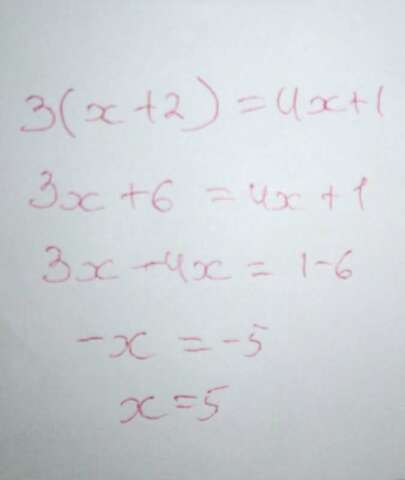 3(x+2)=4x+1
3x+6=4x+1
3x-4x=1-6
-x=-5
x=5